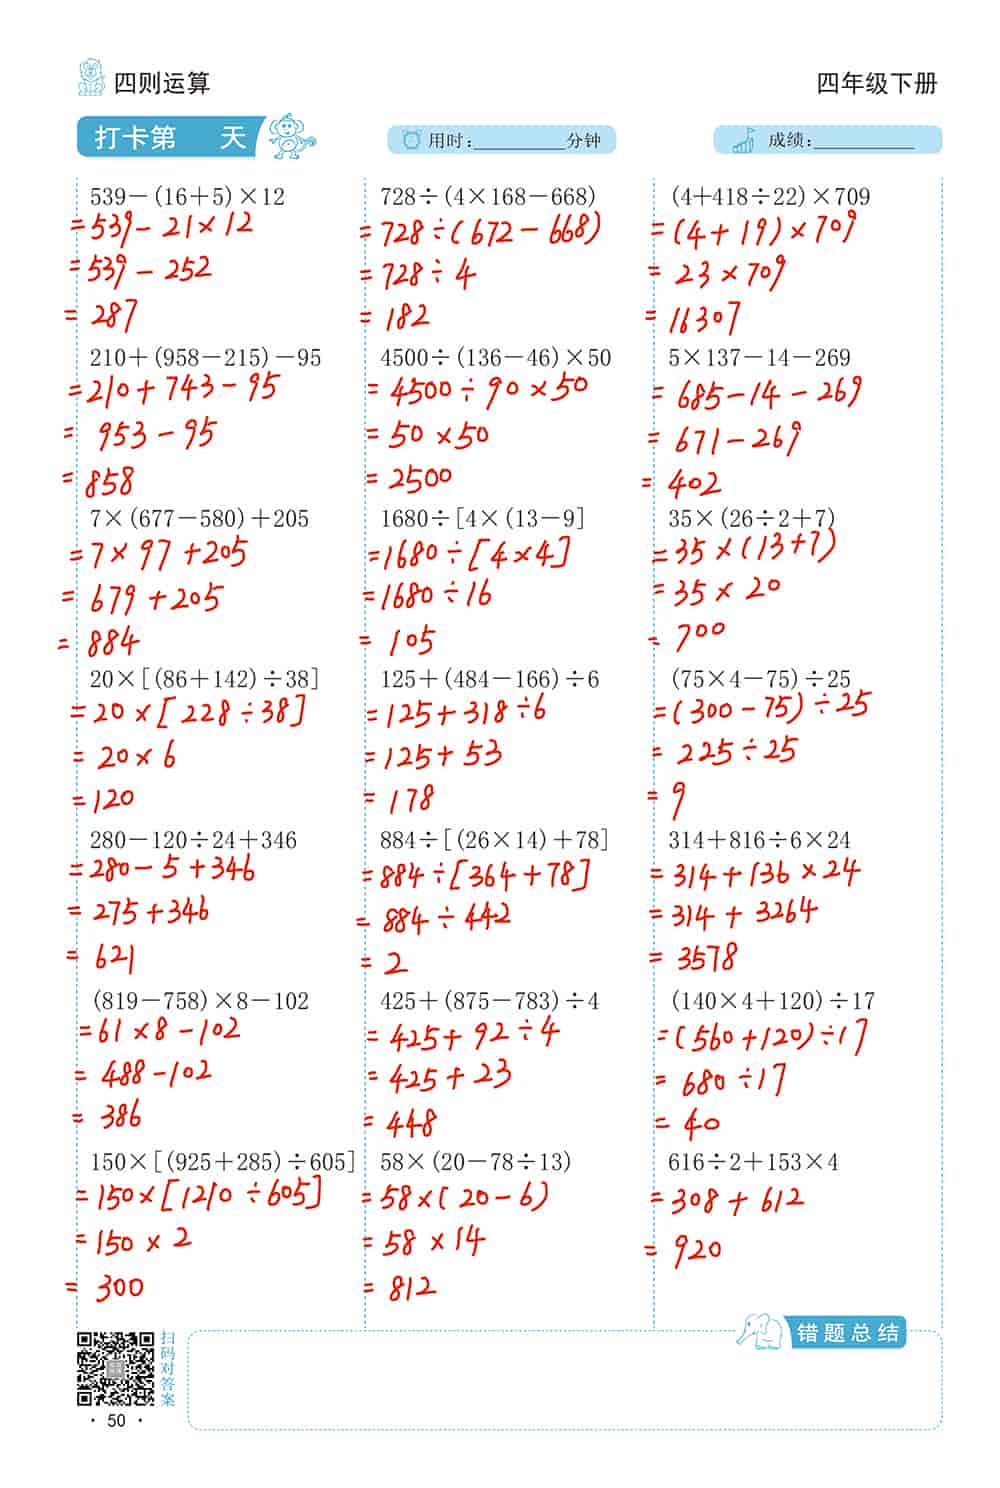 四则运算
四年级下册
打卡第 天
用时:__________分钟
成绩:__________
539-(16+5)×12
=539-21×12
=539-252
=287
210+(958-215)-95
=210+743-95
=953-95
=858
7×(677-580)+205
=7×97+205
=679+205
=884
20×[(86+142)÷38]
=20×[228÷38]
=20×6
=120
280-120÷24+346
=280-5+346
=275+346
=621
(819-758)×8-102
=61×8-102
=488-102
=386
150×[(925+285)÷605]
=150×[1210÷605]
=150×2
=300
728÷(4×168-668)
=728÷(672-668)
=728÷4
=182
4500÷(136-46)×50
=4500÷90×50
=50×50
=2500
1680÷[4×(13-9]
=1680÷[4×4]
=1680÷16
=105
125+(484-166)÷6
=125+318÷6
=125+53
=178
884÷[(26×14)+78]
=884÷[364+78]
=884÷442
=2
425+(875-783)÷4
=425+92÷4
=425+23
=448
58×(20-78÷13)
=58×(20-6)
=58×14
=812
(4+418÷22)×709
=(4+19)×709
=23×709
=16307
5×137-14-269
=685-14-269
=671-269
=402
35×(26÷2+7)
=35×(13+7)
=35×20
=700
(75×4-75)÷25
=(300-75)÷25
=225÷25
=9
314+816÷6×24
=314+136×24
=314+3264
=3578
(140×4+120)÷17
=(560+120)÷17
=680÷17
=40
616÷2+153×4
=308+612
=920
扫码对答案
错题总结
·50·